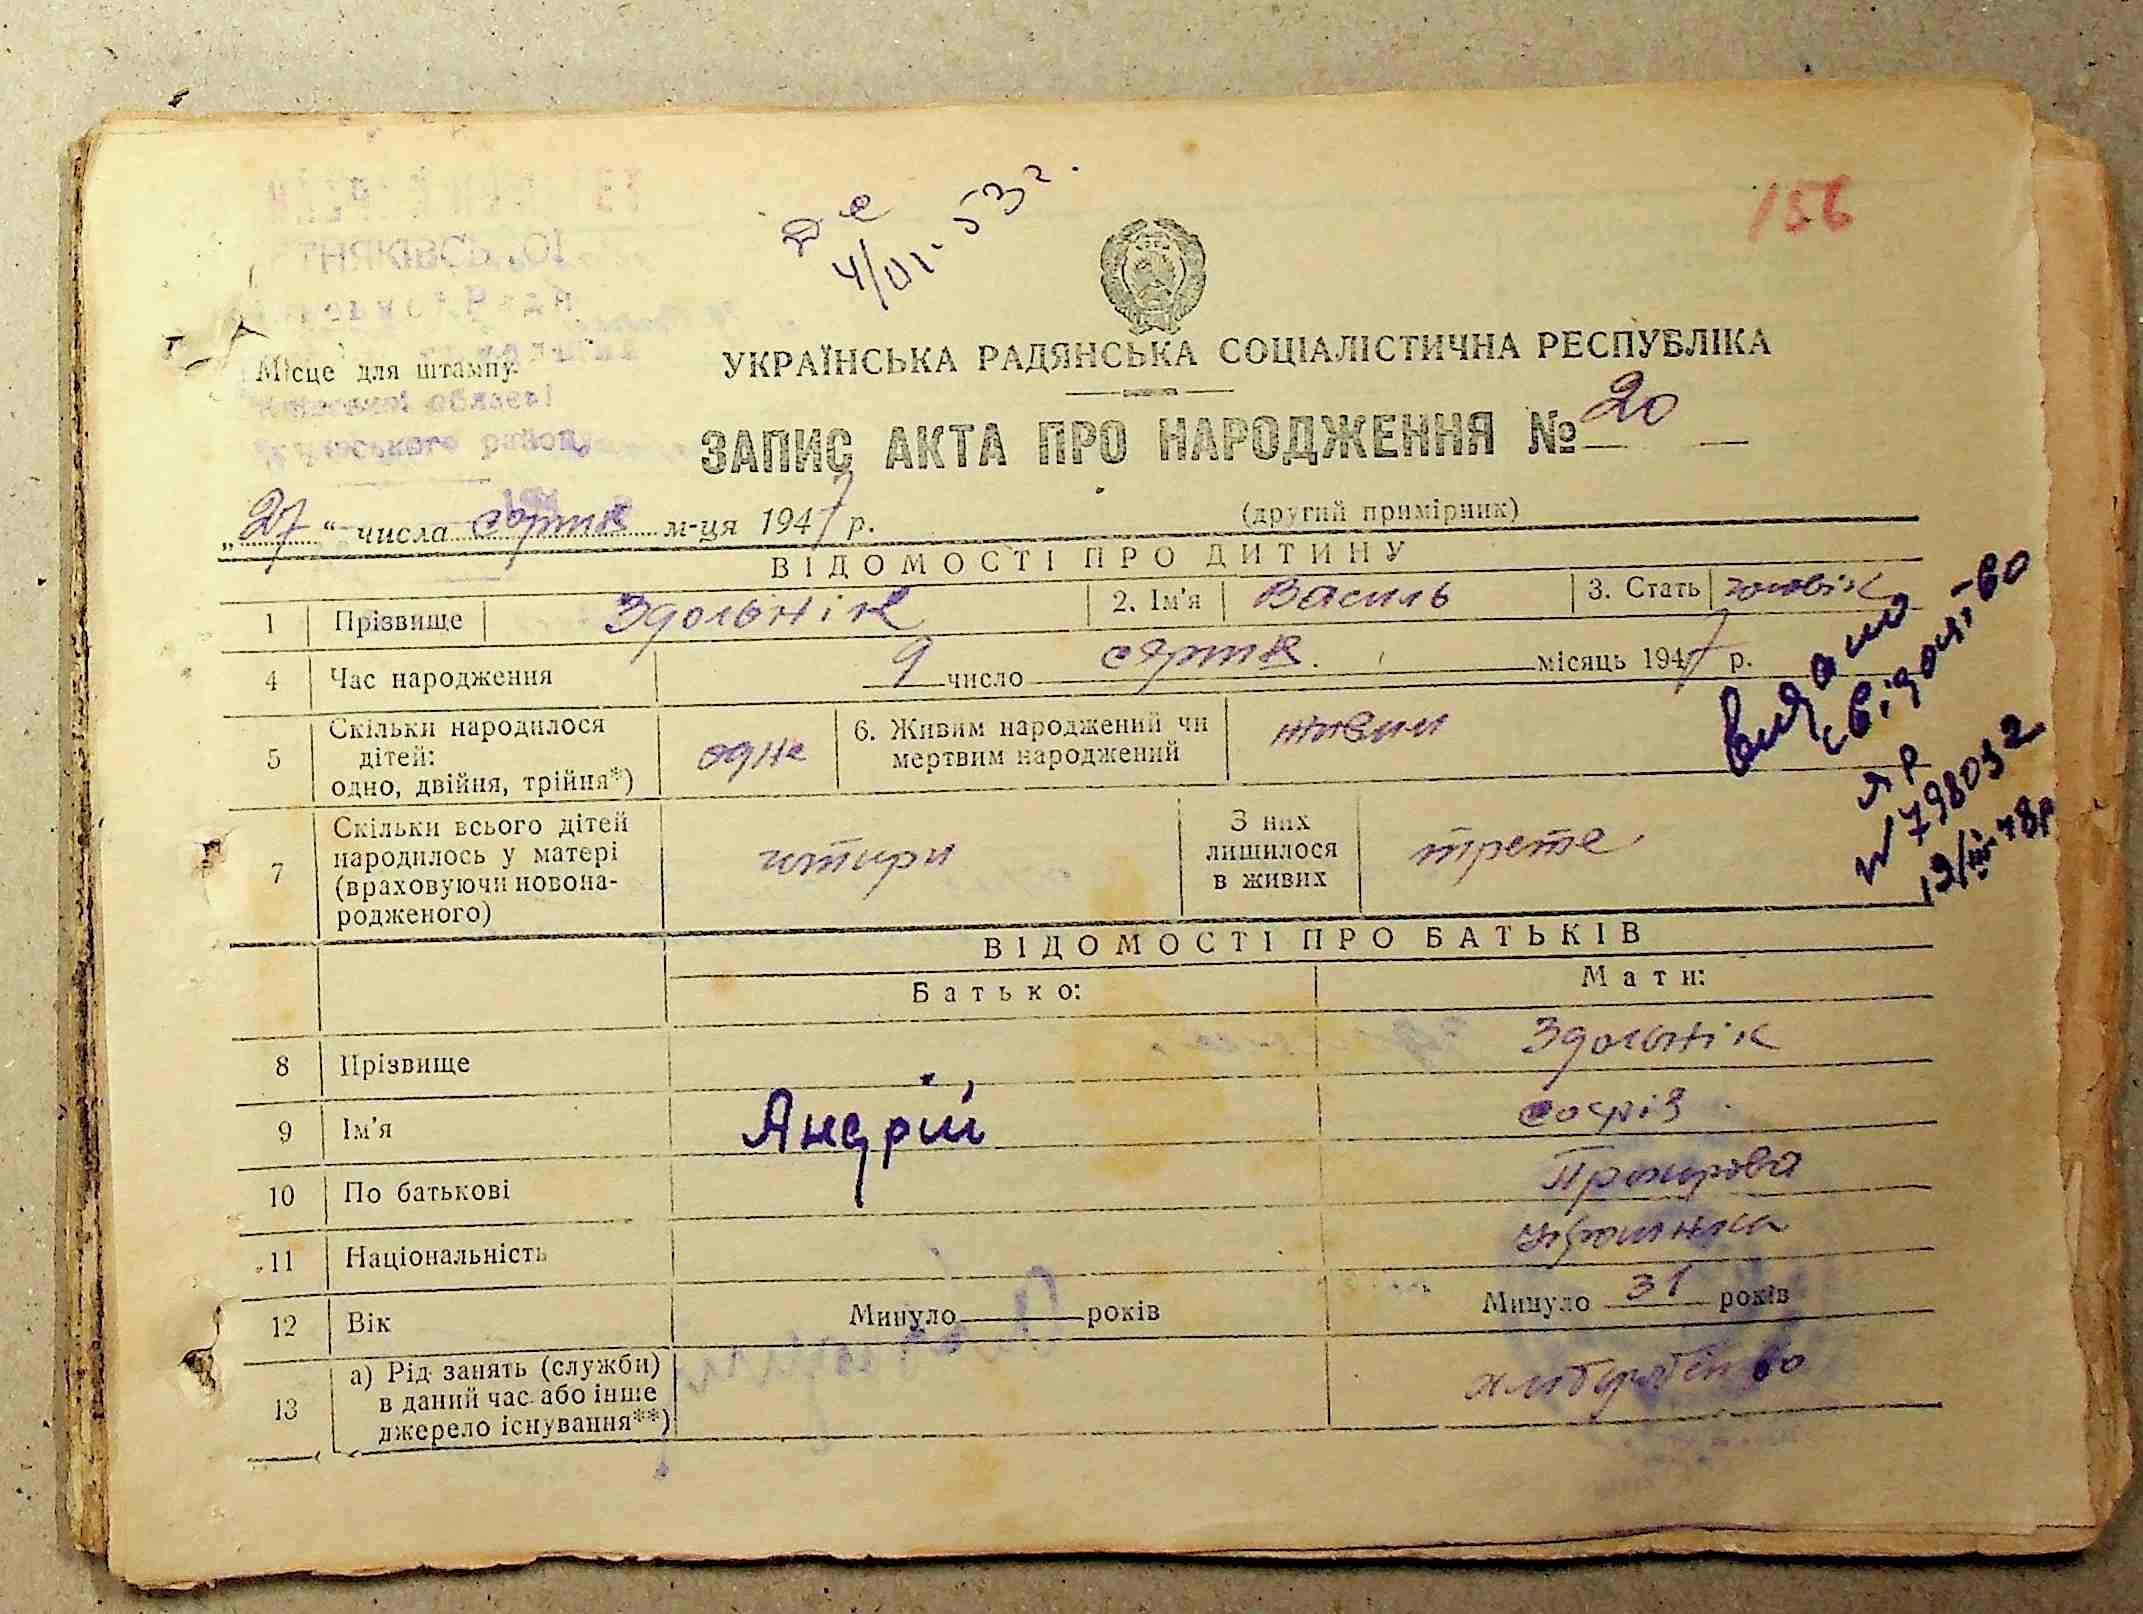 156
4/VI-53 г.
УКРАЇНСЬКА РАДЯНСЬКА СОЦІАЛІСТИЧНА РЕСПУБЛІКА
Місце для штампу
ЗАПИС АКТА ПРО НАРОДЖЕННЯ № 20
(другий примірник)
„27“ числа серпня м-ця 1947 р.
ВІДОМОСТІ ПРО ДИТИНУ
1 Прізвище Здольнік 2. Ім'я Василь 3. Стать чоловік
4 Час народження 9 число серпня місяць 1947 р.
5 Скільки народилося дітей: одно, двійня, трійня*) одне 6. Живим народжений чи мертвим народжений живим
7 Скільки всього дітей народилось у матері (враховуючи новонародженого) чотири З них лишилося в живих трете
видано
свідоц,-во
ЯР
№ 798032
19/III-48р
ВІДОМОСТІ ПРО БАТЬКІВ
Батько: Мати:
8 Прізвище Здольнік
9 Ім'я Андрій Софія
10 По батькові
11 Національність українка
12 Вік Минуло років Минуло 31 років
13 а) Рід занять (служби) в даний час або інше джерело існування**)